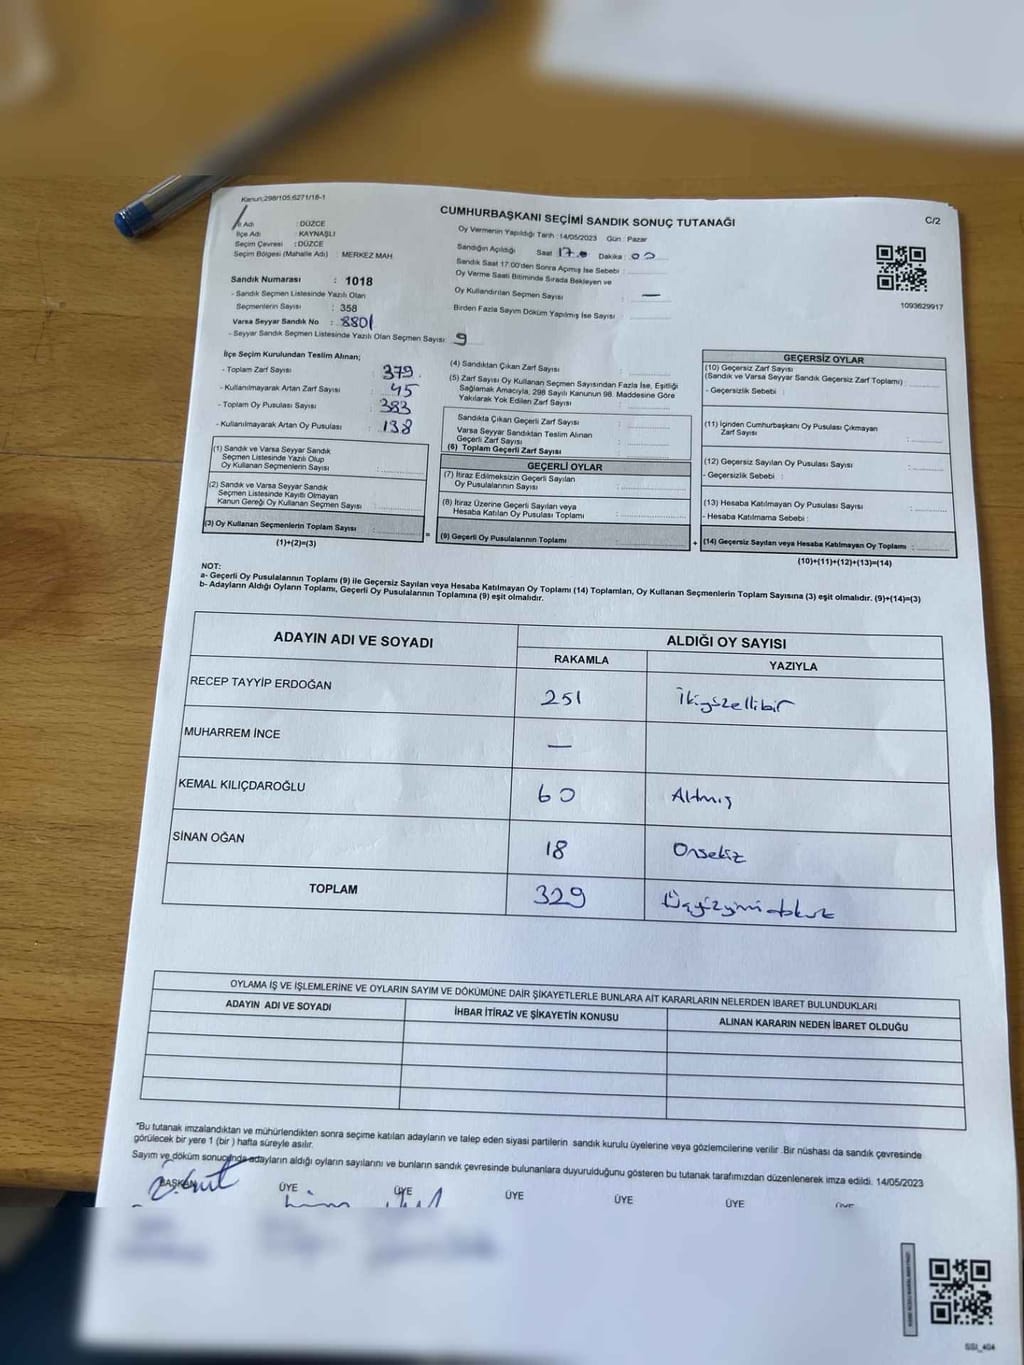 Kanun:298/105;6271/16-1
CUMHURBAŞKANI SEÇİMİ SANDIK SONUÇ TUTANAĞI
C/2
İl Adı : DÜZCE
İlçe Adı : KAYNAŞLI
Seçim Çevresi : DÜZCE
Seçim Bölgesi (Mahalle Adı) : MERKEZ MAH
Oy Vermenin Yapıldığı Tarih : 14/05/2023 Gün : Pazar
Sandığın Açıldığı Saat 17.00 Dakika : 00
Sandık Saat 17:00'den Sonra Açmış İse Sebebi :
Oy Verme Saati Bitiminde Sırada Bekleyen ve
Oy Kullandırılan Seçmen Sayısı : —
Birden Fazla Sayım Döküm Yapılmış İse Sayısı :
1093629917
Sandık Numarası : 1018
- Sandık Seçmen Listesinde Yazılı Olan
Seçmenlerin Sayısı : 358
Varsa Seyyar Sandık No : 8801
- Seyyar Sandık Seçmen Listesinde Yazılı Olan Seçmen Sayısı: 9
İlçe Seçim Kurulundan Teslim Alınan;
- Toplam Zarf Sayısı : 379
- Kullanılmayarak Artan Zarf Sayısı : 45
- Toplam Oy Pusulası Sayısı : 383
- Kullanılmayarak Artan Oy Pusulası : 138
(1) Sandık ve Varsa Seyyar Sandık
Seçmen Listesinde Yazılı Olup
Oy Kullanan Seçmenlerin Sayısı :
(2) Sandık ve Varsa Seyyar Sandık
Seçmen Listesinde Kayıtlı Olmayan
Kanun Gereği Oy Kullanan Seçmen Sayısı :
(3) Oy Kullanan Seçmenlerin Toplam Sayısı :
(1)+(2)=(3)
=
(4) Sandıktan Çıkan Zarf Sayısı :
(5) Zarf Sayısı Oy Kullanan Seçmen Sayısından Fazla İse, Eşitliği
Sağlamak Amacıyla, 298 Sayılı Kanunun 98. Maddesine Göre
Yakılarak Yok Edilen Zarf Sayısı :
Sandıkta Çıkan Geçerli Zarf Sayısı :
Varsa Seyyar Sandıktan Teslim Alınan
Geçerli Zarf Sayısı :
(6) Toplam Geçerli Zarf Sayısı :
GEÇERLİ OYLAR
(7) İtiraz Edilmeksizin Geçerli Sayılan
Oy Pusulalarının Sayısı :
(8) İtiraz Üzerine Geçerli Sayılan veya
Hesaba Katılan Oy Pusulası Toplamı :
(9) Geçerli Oy Pusulalarının Toplamı :
+
GEÇERSİZ OYLAR
(10) Geçersiz Zarf Sayısı
(Sandık ve Varsa Seyyar Sandık Geçersiz Zarf Toplamı) :
- Geçersizlik Sebebi :
(11) İçinden Cumhurbaşkanı Oy Pusulası Çıkmayan
Zarf Sayısı :
(12) Geçersiz Sayılan Oy Pusulası Sayısı :
- Geçersizlik Sebebi :
(13) Hesaba Katılmayan Oy Pusulası Sayısı :
- Hesaba Katılmama Sebebi :
(14) Geçersiz Sayılan veya Hesaba Katılmayan Oy Toplamı :
(10)+(11)+(12)+(13)=(14)
NOT:
a- Geçerli Oy Pusulalarının Toplamı (9) ile Geçersiz Sayılan veya Hesaba Katılmayan Oy Toplamı (14) Toplamları, Oy Kullanan Seçmenlerin Toplam Sayısına (3) eşit olmalıdır. (9)+(14)=(3)
b- Adayların Aldığı Oyların Toplamı, Geçerli Oy Pusulalarının Toplamına (9) eşit olmalıdır.
ADAYIN ADI VE SOYADI ALDIĞI OY SAYISI
RAKAMLA YAZIYLA
RECEP TAYYİP ERDOĞAN 251 İkiyüzellibir
MUHARREM İNCE —
KEMAL KILIÇDAROĞLU 60 Altmış
SİNAN OĞAN 18 Onsekiz
TOPLAM 329 Üçyüzyirmidokuz
OYLAMA İŞ VE İŞLEMLERİNE VE OYLARIN SAYIM VE DÖKÜMÜNE DAİR ŞİKAYETLERLE BUNLARA AİT KARARLARIN NELERDEN İBARET BULUNDUKLARI
ADAYIN ADI VE SOYADI İHBAR İTİRAZ VE ŞİKAYETİN KONUSU ALINAN KARARIN NEDEN İBARET OLDUĞU
*Bu tutanak imzalandıktan ve mühürlendikten sonra seçime katılan adayların ve talep eden siyasi partilerin sandık kurulu üyelerine veya gözlemcilerine verilir .Bir nüshası da sandık çevresinde
görülecek bir yere 1 (bir ) hafta süreyle asılır.
Sayım ve döküm sonucunda adayların aldığı oyların sayılarını ve bunların sandık çevresinde bulunanlara duyurulduğunu gösteren bu tutanak tarafımızdan düzenlenerek imza edildi. 14/05/2023
BAŞKAN ÜYE ÜYE ÜYE ÜYE ÜYE ÜYE
SSI_404